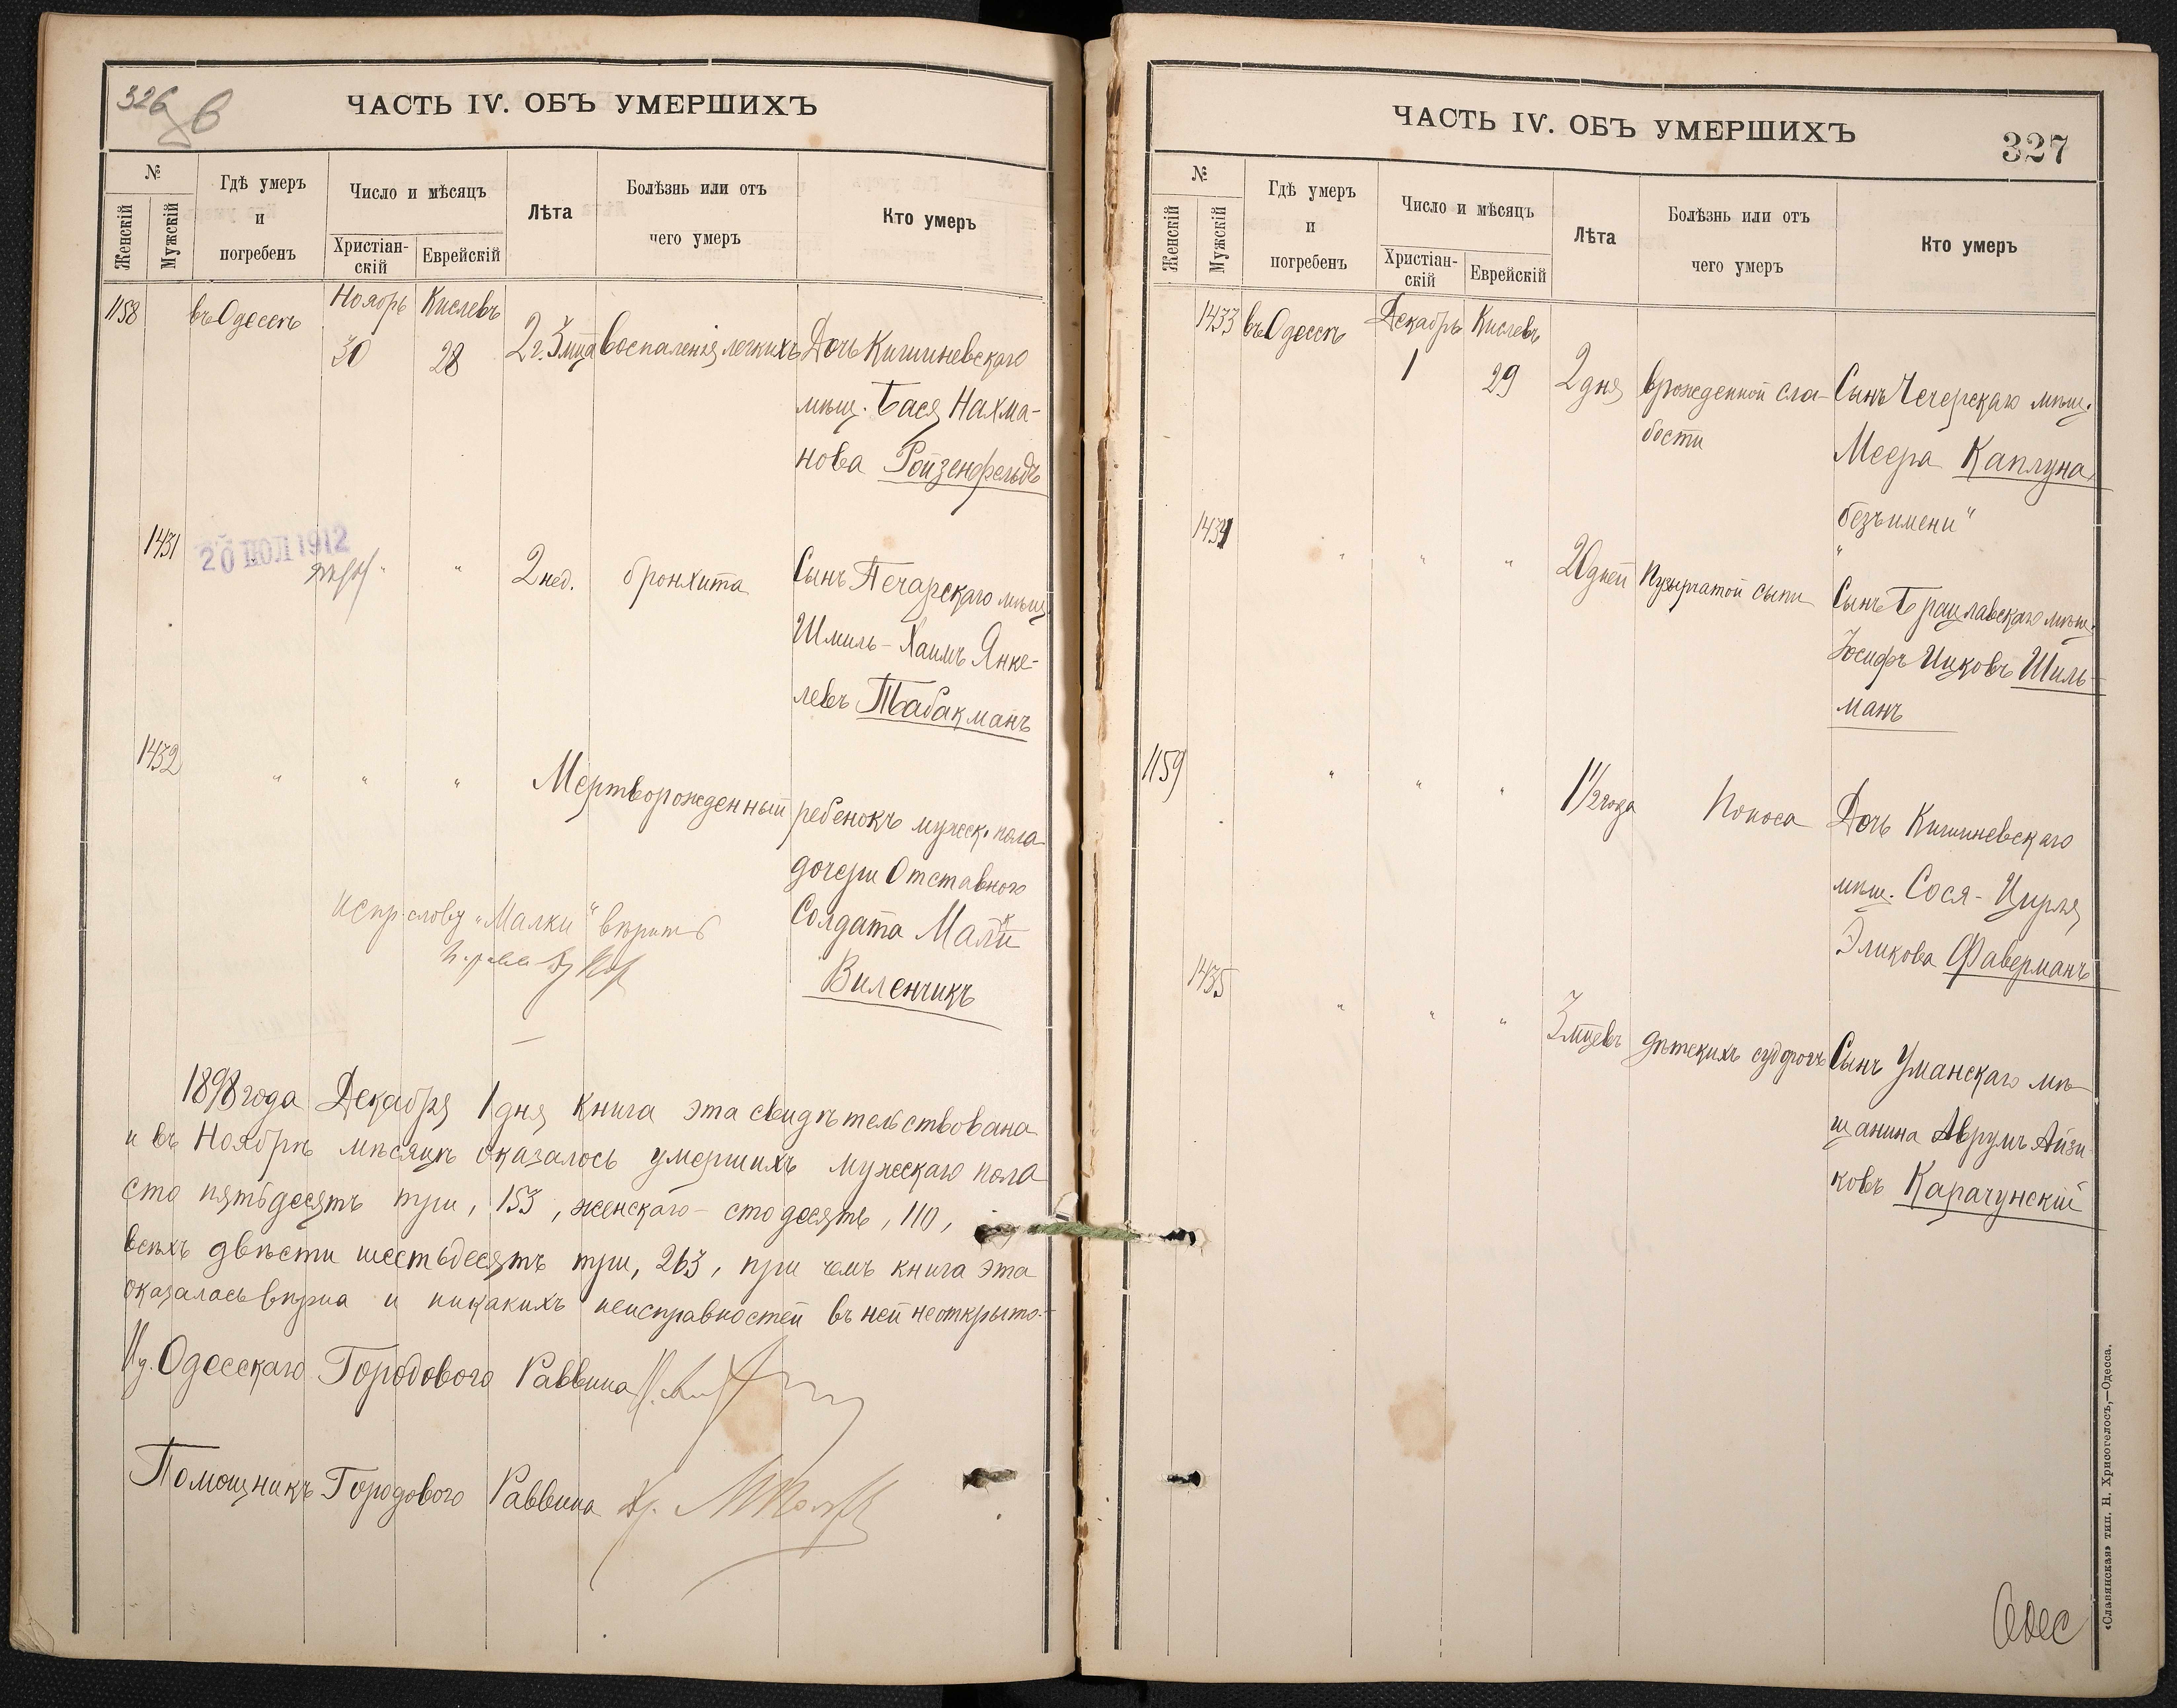 326 в
ЧАСТЬ IV. ОБЪ УМЕРШИХЪ
№
Женскій
Мужскій
Гдѣ умеръ
и
погребенъ
Число и мѣсяцъ
Христіан-
скій
Еврейскій
Лѣта
Болѣзнь или отъ
чего умеръ
Кто умеръ
1158 въ Одессѣ Ноябрь Кислевъ
30 28 2 г. 3 мца воспаленія легкихъ Дочь Кишиневскаго
мѣщ. Бася Нахма-
нова Ройзенфельдъ
1431 20 ІЮЛ 1912
" " 2 нед. бронхита Сынъ Печарскаго мѣщ.
Шмиль-Хаимъ Янке-
левъ Табакманъ
1432 " " " Мертворожденный ребенокъ мужеск. пола
дочери Отставного
Солдата Малки
Виленчикъ
Испр. слову „Малки“ вѣрить
1898 года Декабря 1 дня книга эта свидѣтельствована
и въ Ноябрѣ мѣсяцѣ оказалось умершихъ мужескаго пола
сто пятьдесятъ три, 153, женскаго - сто десять, 110,
всѣхъ двѣсти шестьдесятъ три, 263, при чемъ книга эта
оказалась вѣрна и никакихъ неисправностей въ ней не открыто.-
Ид. Одесскаго Городового Раввина
Помощникъ Городового Раввина
ЧАСТЬ IV. ОБЪ УМЕРШИХЪ
327
№
Женскій
Мужскій
Гдѣ умеръ
и
погребенъ
Число и мѣсяцъ
Христіан-
скій
Еврейскій
Лѣта
Болѣзнь или отъ
чего умеръ
Кто умеръ
1433 въ Одессѣ Декабрь Кислевъ
1 29 2 дня врожденной сла- Сынъ Чечерскаго мѣщ.
бости Меера Каплуна,
безъ имени"
1434 " " " 20 дней Пузырчатой сыпи Сынъ Брацлавскаго мѣщ.
Іосифъ Ицковъ Шиль-
манъ
1159 " " " 1 1/2 года Поноса Дочь Кишиневскаго
мѣщ. Сося-Цирля
Эликова Фаверманъ
1435 " " " 3 мцевъ дѣтскихъ судрогъ Сынъ Уманскаго мѣ-
щанина Аврумъ Айзи-
ковъ Карачунскій
«Славянская» тип. Н. Хрисогелосъ,—Одесса.